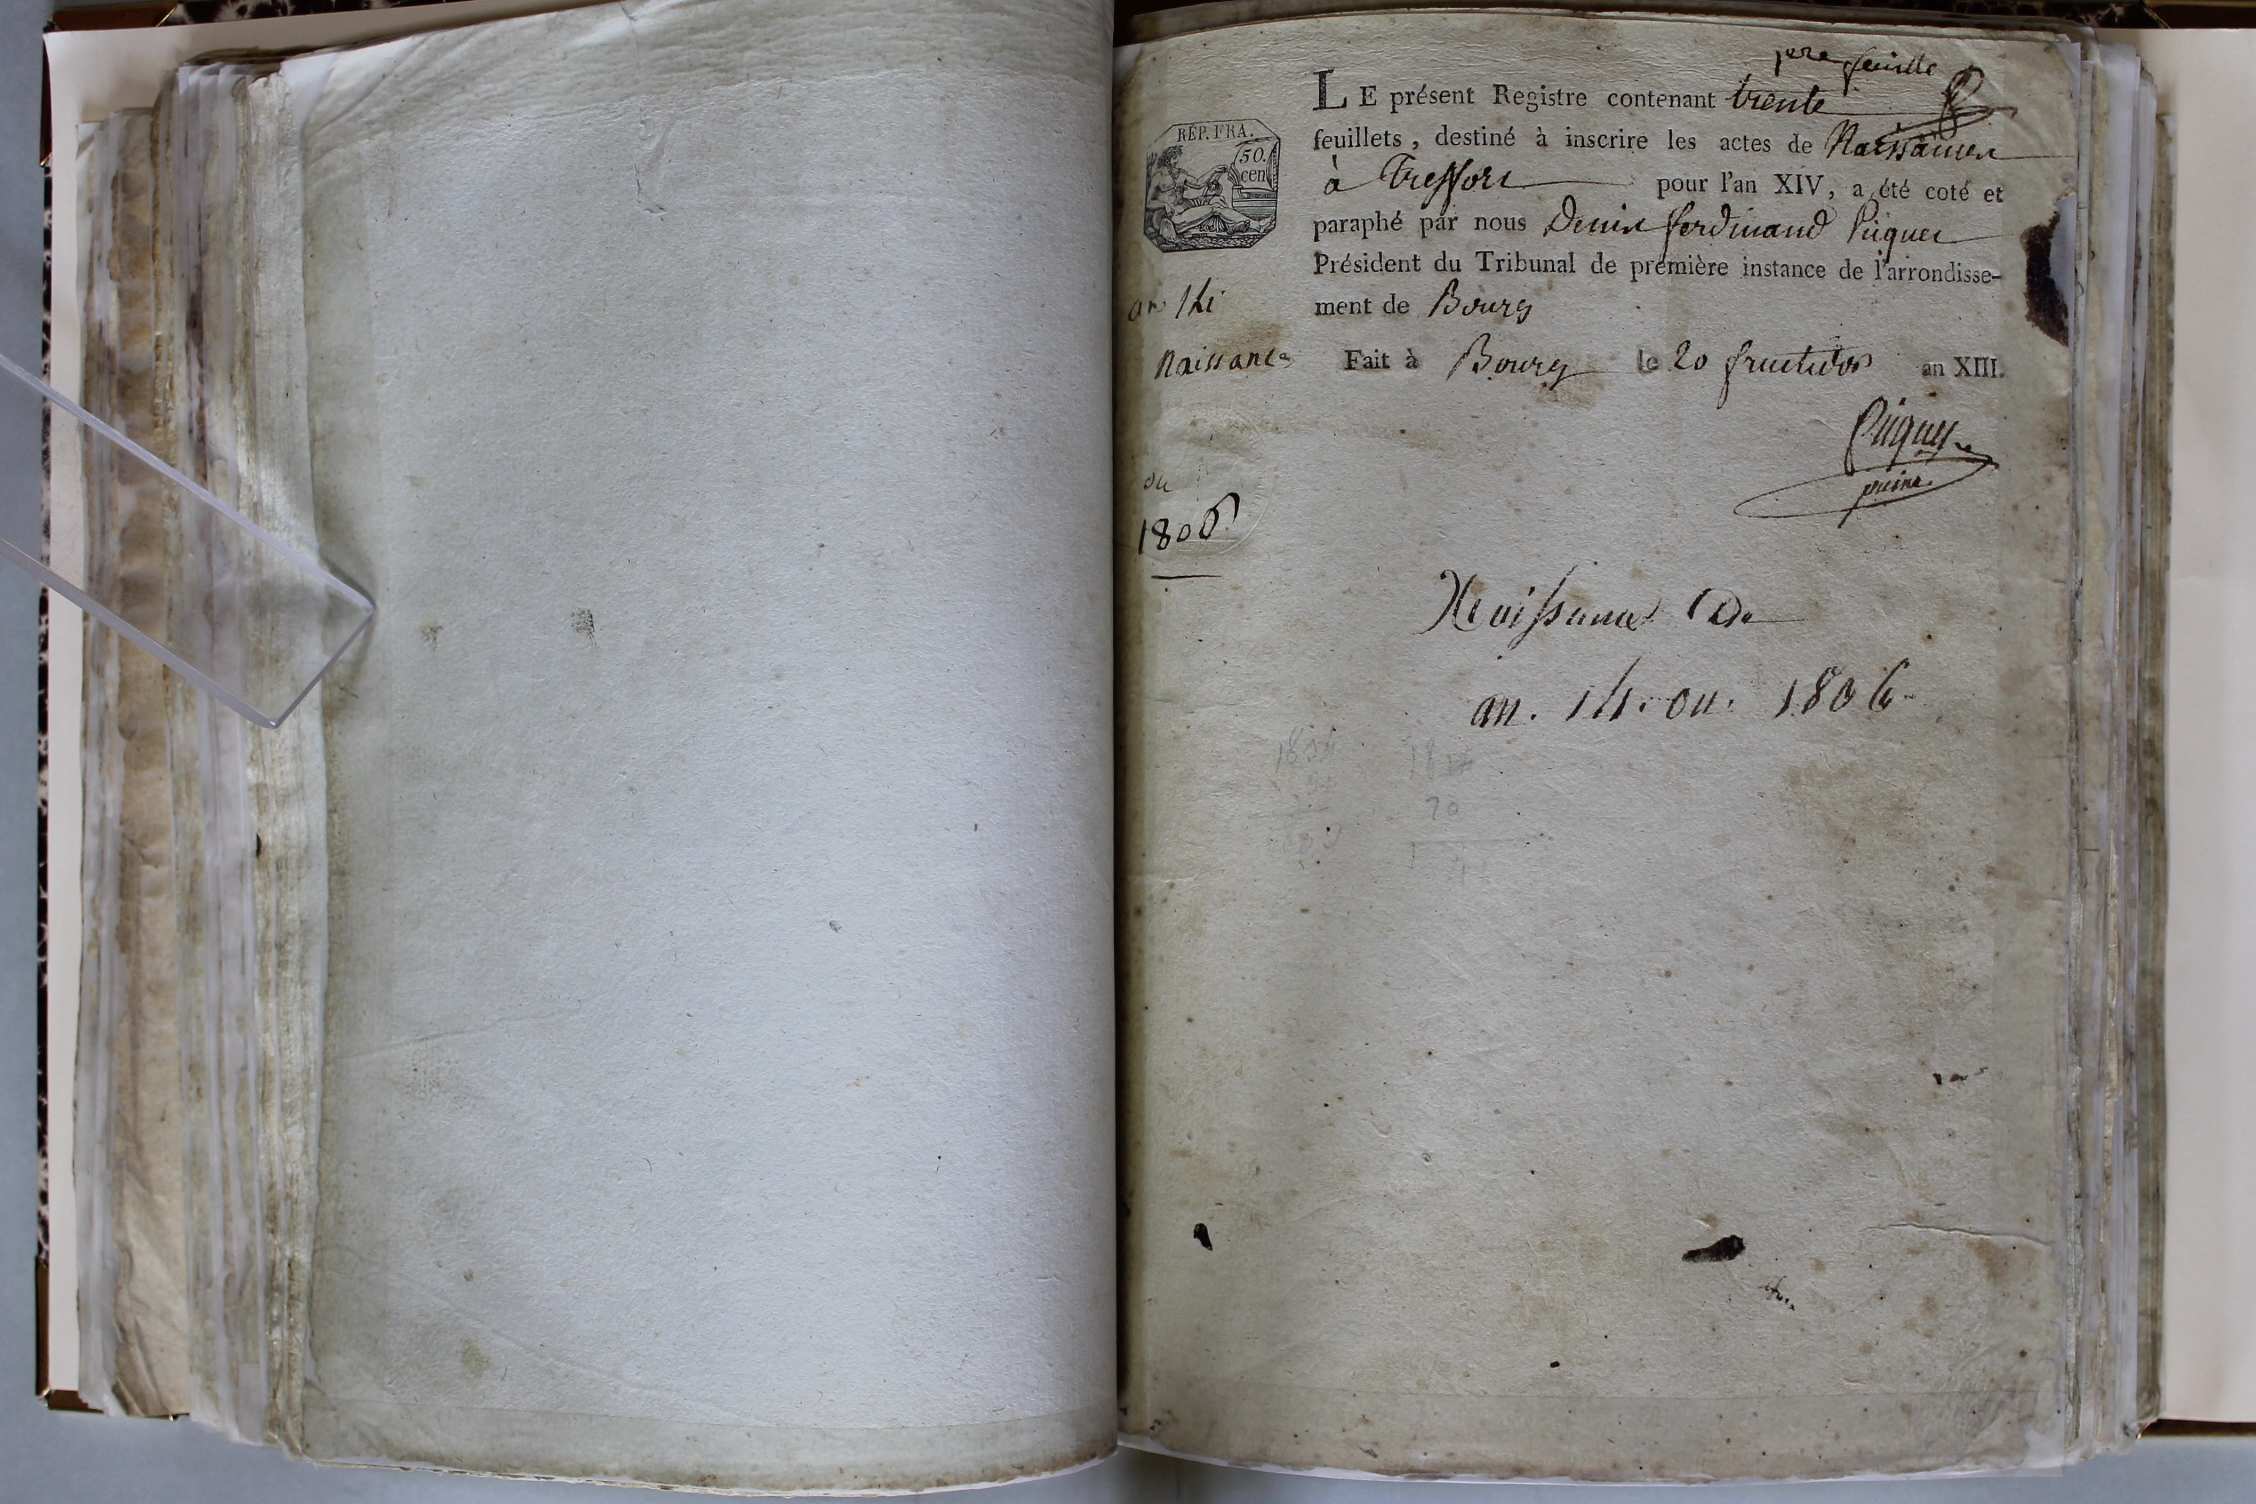 1ere feuille
LE présent Registre contenant trente
feuillets, destiné à inscrire les actes de Naissances
à Treffort pour l'an XIV, a été coté et
paraphé par nous Denis ferdinand Piquet
Président du Tribunal de première instance de l'arrondisse-
ment de Bourg
Fait à Bourg le 20 fructidor an XIII.
RÉP. FRA.
50.
cen
an 14
Naissance
ou
1806
Piquet
Naissance De
an. 14. ou. 1806